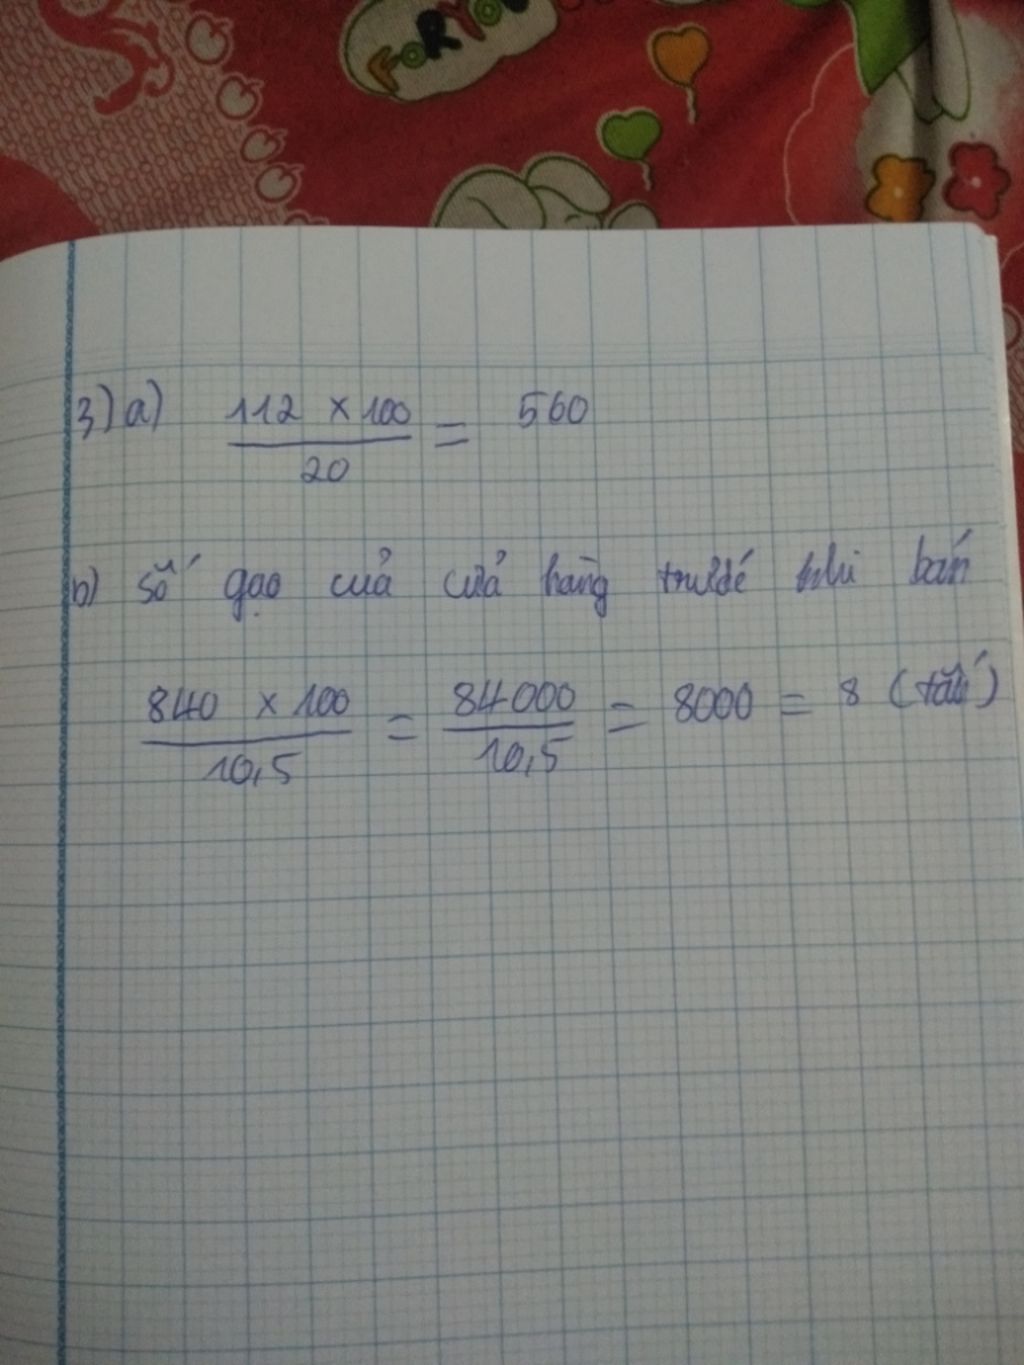 FOR YOU
3) a) 112 × 100 / 20 = 560
b) Số gạo của cửa hàng trước khi bán
840 × 100 / 10,5 = 84000 / 10,5 = 8000 = 8 (tấn)